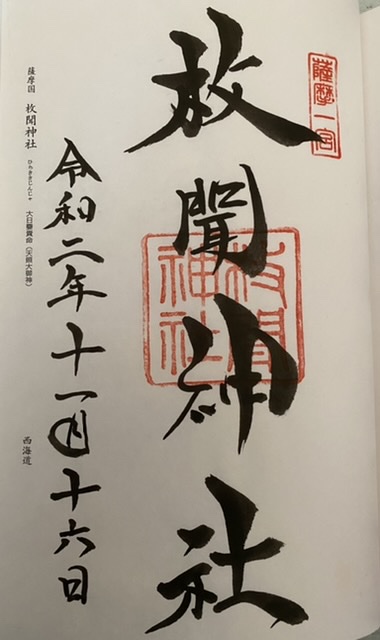 薩摩一宮
枚聞神社
枚聞神社
令和二年十一月十六日
薩摩国 枚聞神社 ひらききじんじゃ 大日孁貴命(天照大御神)
西海道